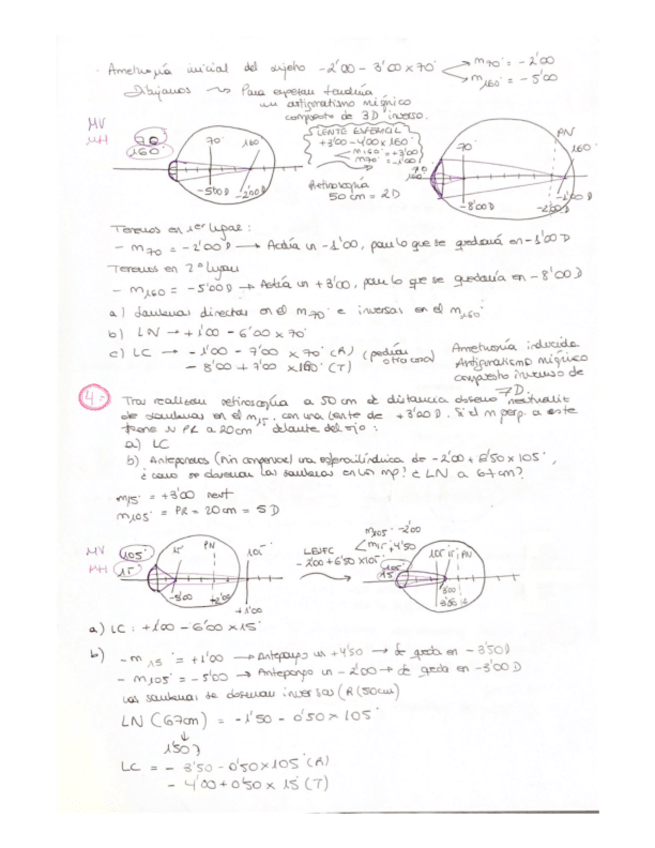 · Ametropía inicial del sujeto -2'00 - 3'00 x 70° m70° = -2'00
m160° = -5'00
Dibujamos Para expetau tendría
un astigmatismo miópico
compuesto de 3D inverso.
MV 70°
MH 160°
70° 160
-5'00D -2'00D
LENTE ESFEROCIL
+3'00 -4'00 x 160°
m160 = +3'00
m70° = -1'00
Retinoscopía
50 cm = 2D
PN
70 160
70
160°
-8'00D -2'00D -1'00D
Tenemos en 1er lugar:
- m70 = -2'00D → Actúa un -1'00, por lo que se quedará en -1'00 D
Tenemos en 2º lugar
- m160 = -5'00D → Actúa un +3'00, por lo que se quedaría en -8'00D
a) Sombras directas en el m70° e inversas en el m160°
b) LN → +1'00 - 6'00 x 70°
c) LC → -1'00 - 7'00 x 70° (R) (pedían otra cosa)
- 8'00 + 7'00 x 160° (T)
Ametropía inducida
Astigmatismo miópico
compuesto inverso de
7D.
4.- Tras realizar retinoscopía a 50 cm de distancia observo neutraliz
de sombras en el m15° con una lente de +3'00D. Si el m perp. a este
tiene su PR a 20cm delante del ojo:
a) LC
b) Anteponemos (sin compensar) una esferocilíndrica de -2'00 + 6'50 x 105°,
¿cómo se observan las sombras en los mp? ¿LN a 67cm?
m15° = +3'00 neut
m105° = PR = 20 cm = 5D
MV 105°
MH 15°
15° PN 105°
-5'00 +2'00
+1'00
LESFC
-2'00 + 6'50 x 105°
m105° -2'00
m15° +4'50
105° 15° PN
105°
15°
3'00
3'50
a) LC: +1'00 - 6'00 x 15°
b) - m15° = +1'00 → Antepongo un +4'50 → se queda en -3'50D
- m105° = -5'00 → Antepongo un -2'00 → se queda en -3'00 D
Las sombras se observan inversas (R (50cm)
LN (67cm) = -1'50 - 0'50 x 105°
↓
1'50
LC = - 3'50 - 0'50 x 105° (R)
- 4'00 + 0'50 x 15° (T)